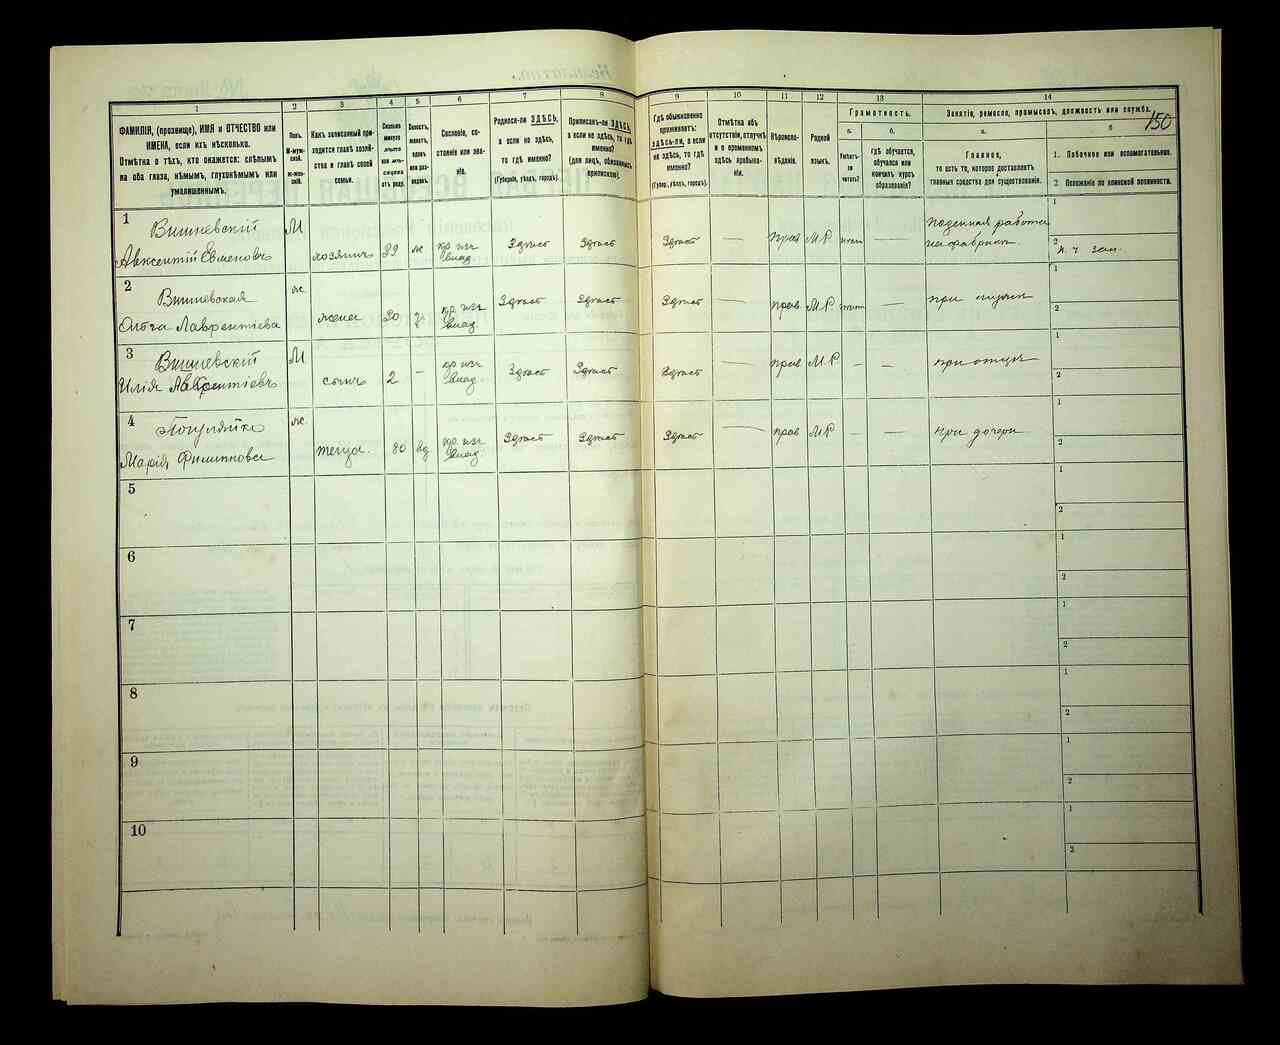 150
1
2
3
4
5
6
7
8
9
10
11
12
13
14
ФАМИЛІЯ, (прозвище), ИМЯ и ОТЧЕСТВО или
ИМЕНА, если ихъ нѣсколько.
Отмѣтка о тѣхъ, кто окажется: слѣпымъ
на оба глаза, нѣмымъ, глухонѣмымъ или
умалишеннымъ.
Полъ.
М-муж-
ской.
Ж-жен-
скій.
Какъ записанный при-
ходится главѣ хозяй-
ства и главѣ своей
семьи.
Сколько
минуло
лѣтъ
или мѣ-
сяцевъ
отъ роду.
Холостъ,
женатъ,
вдовъ
или раз-
веденъ.
Сословіе, со-
стояніе или зва-
ніе.
Родился-ли ЗДѢСЬ,
а если не здѣсь,
то гдѣ именно?
(Губернія, уѣздъ, городъ).
Приписанъ-ли ЗДѢСЬ,
а если не здѣсь, то гдѣ
именно?
(для лицъ, обязанныхъ
припискою).
Гдѣ обыкновенно
проживаетъ:
здѣсь-ли, а если
не здѣсь, то гдѣ
именно?
(Губер., уѣздъ, городъ).
Отмѣтка объ
отсутствіи, отлучкѣ
и о временномъ
здѣсь пребыва-
ніи.
Вѣроиспо-
вѣданіе.
Родной
языкъ.
Грамотность.
а.
б.
Умѣетъ-
ли
читать?
гдѣ обучается,
обучался или
кончилъ курсъ
образованія?
Занятіе, ремесло, промыселъ, должность или служба.
а.
б
Главное,
то есть то, которое доставляетъ
главныя средства для существованія.
1. Побочное или вспомогательное.
2. Положеніе по воинской повинности.
1
Вишневскій
Авксентій Евменовъ
М
хозяинъ
39
ж
кр. изъ
Здѣсь
Здѣсь
Здѣсь
—
прав
М.Р.
—
поденная работа
на фабрикѣ.
1
2
2
Вишневская
Лаврентіева
ж
жена
30
кр. изъ
Здѣсь
Здѣсь
Здѣсь
—
прав
М.Р
—
при мужѣ
1
2
3
Вишневскій
Илія
М
сынъ
2
-
кр изъ
Здѣсь
Здѣсь
Здѣсь
—
прав
М.Р
-
-
при отцѣ
1
2
4
Марія Филиппова
ж
теща.
80
вд
кр. изъ
Здѣсь
Здѣсь
Здѣсь
—
прав
М.Р
-
—
при дочери
1
2
5
1
2
6
1
2
7
1
2
8
1
2
9
1
2
10
1
2